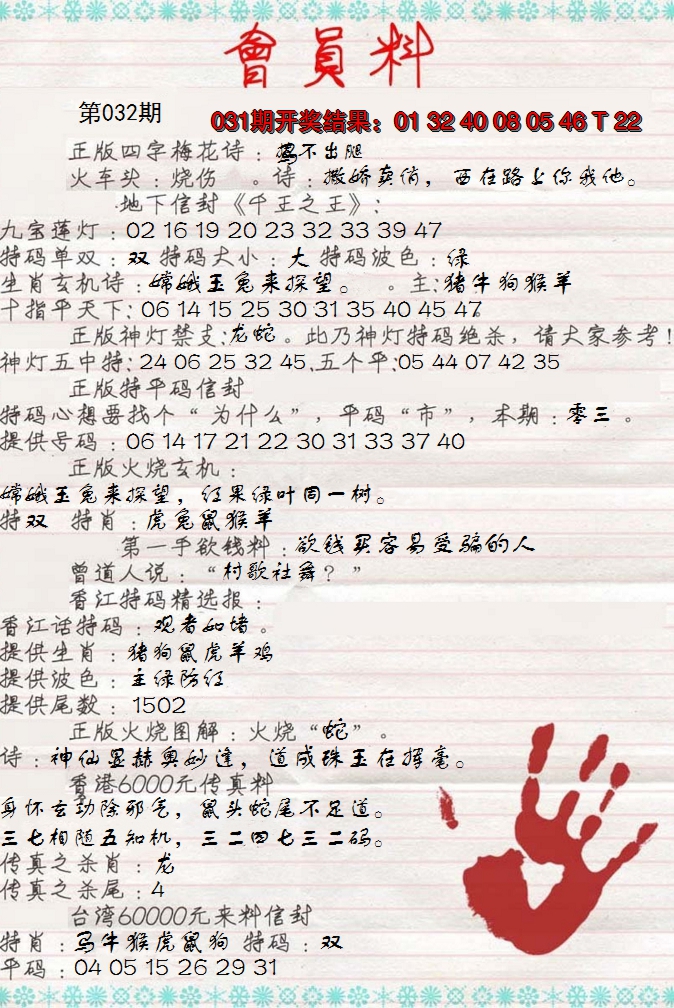 會員料
第032期
031期开奖结果：01 32 40 08 05 46 T 22
正版四字梅花诗：捣不出腿
火车头：烧伤 。诗：撒娇卖俏，西在路上你我他。
地下信封《千王之王》：
九宝莲灯：02 16 19 20 23 32 33 39 47
特码单双：双 特码大小：大 特码波色：绿
生肖玄机诗：嫦娥玉兔来探望。 。主:猪牛狗猴羊
十指平天下: 06 14 15 25 30 31 35 40 45 47
正版神灯禁支:龙蛇。此乃神灯特码绝杀，请大家参考!
神灯五中特:24 06 25 32 45.五个平:05 44 07 42 35
正版特平码信封
特码心想要找个“为什么”，平码“市”，本期：零三 。
提供号码：06 14 17 21 22 30 31 33 37 40
正版火烧玄机：
嫦娥玉兔来探望，红果绿叶同一树。
特双 特肖：虎兔鼠猴羊
第一手欲钱料：欲钱买容易受骗的人
曾道人说：“村歌社舞？”
香江特码精选报：
香江话特码：观者如堵。
提供生肖：猪狗鼠虎羊鸡
提供波色：主绿防红
提供尾数：1502
正版火烧图解：火烧“蛇”。
诗：神仙显赫奥妙逢，道成珠玉在挥毫。
香港6000元传真料
身怀玄功除邪气，鼠头蛇尾不足道。
三七相随五知机，三二四七三二码。
传真之杀肖：龙
传真之杀尾：4
台湾60000元来料信封
特肖：马牛猴虎鼠狗 特码：双
平码：04 05 15 26 29 31